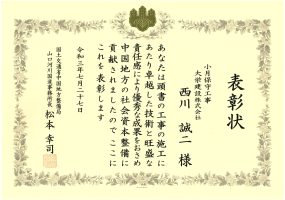 表彰状
小月保守工事
大栄建設株式会社
西川 誠二 様
あなたは頭書の工事の施工に
あたり卓越した技術と旺盛な
責任感により優秀な成果をおさめ
中国地方の社会資本整備に
貢献されましたのでここに
これを表彰します
令和三年七月二十七日
国土交通省中国地方整備局
山口河川国道事務所長 松本 幸司